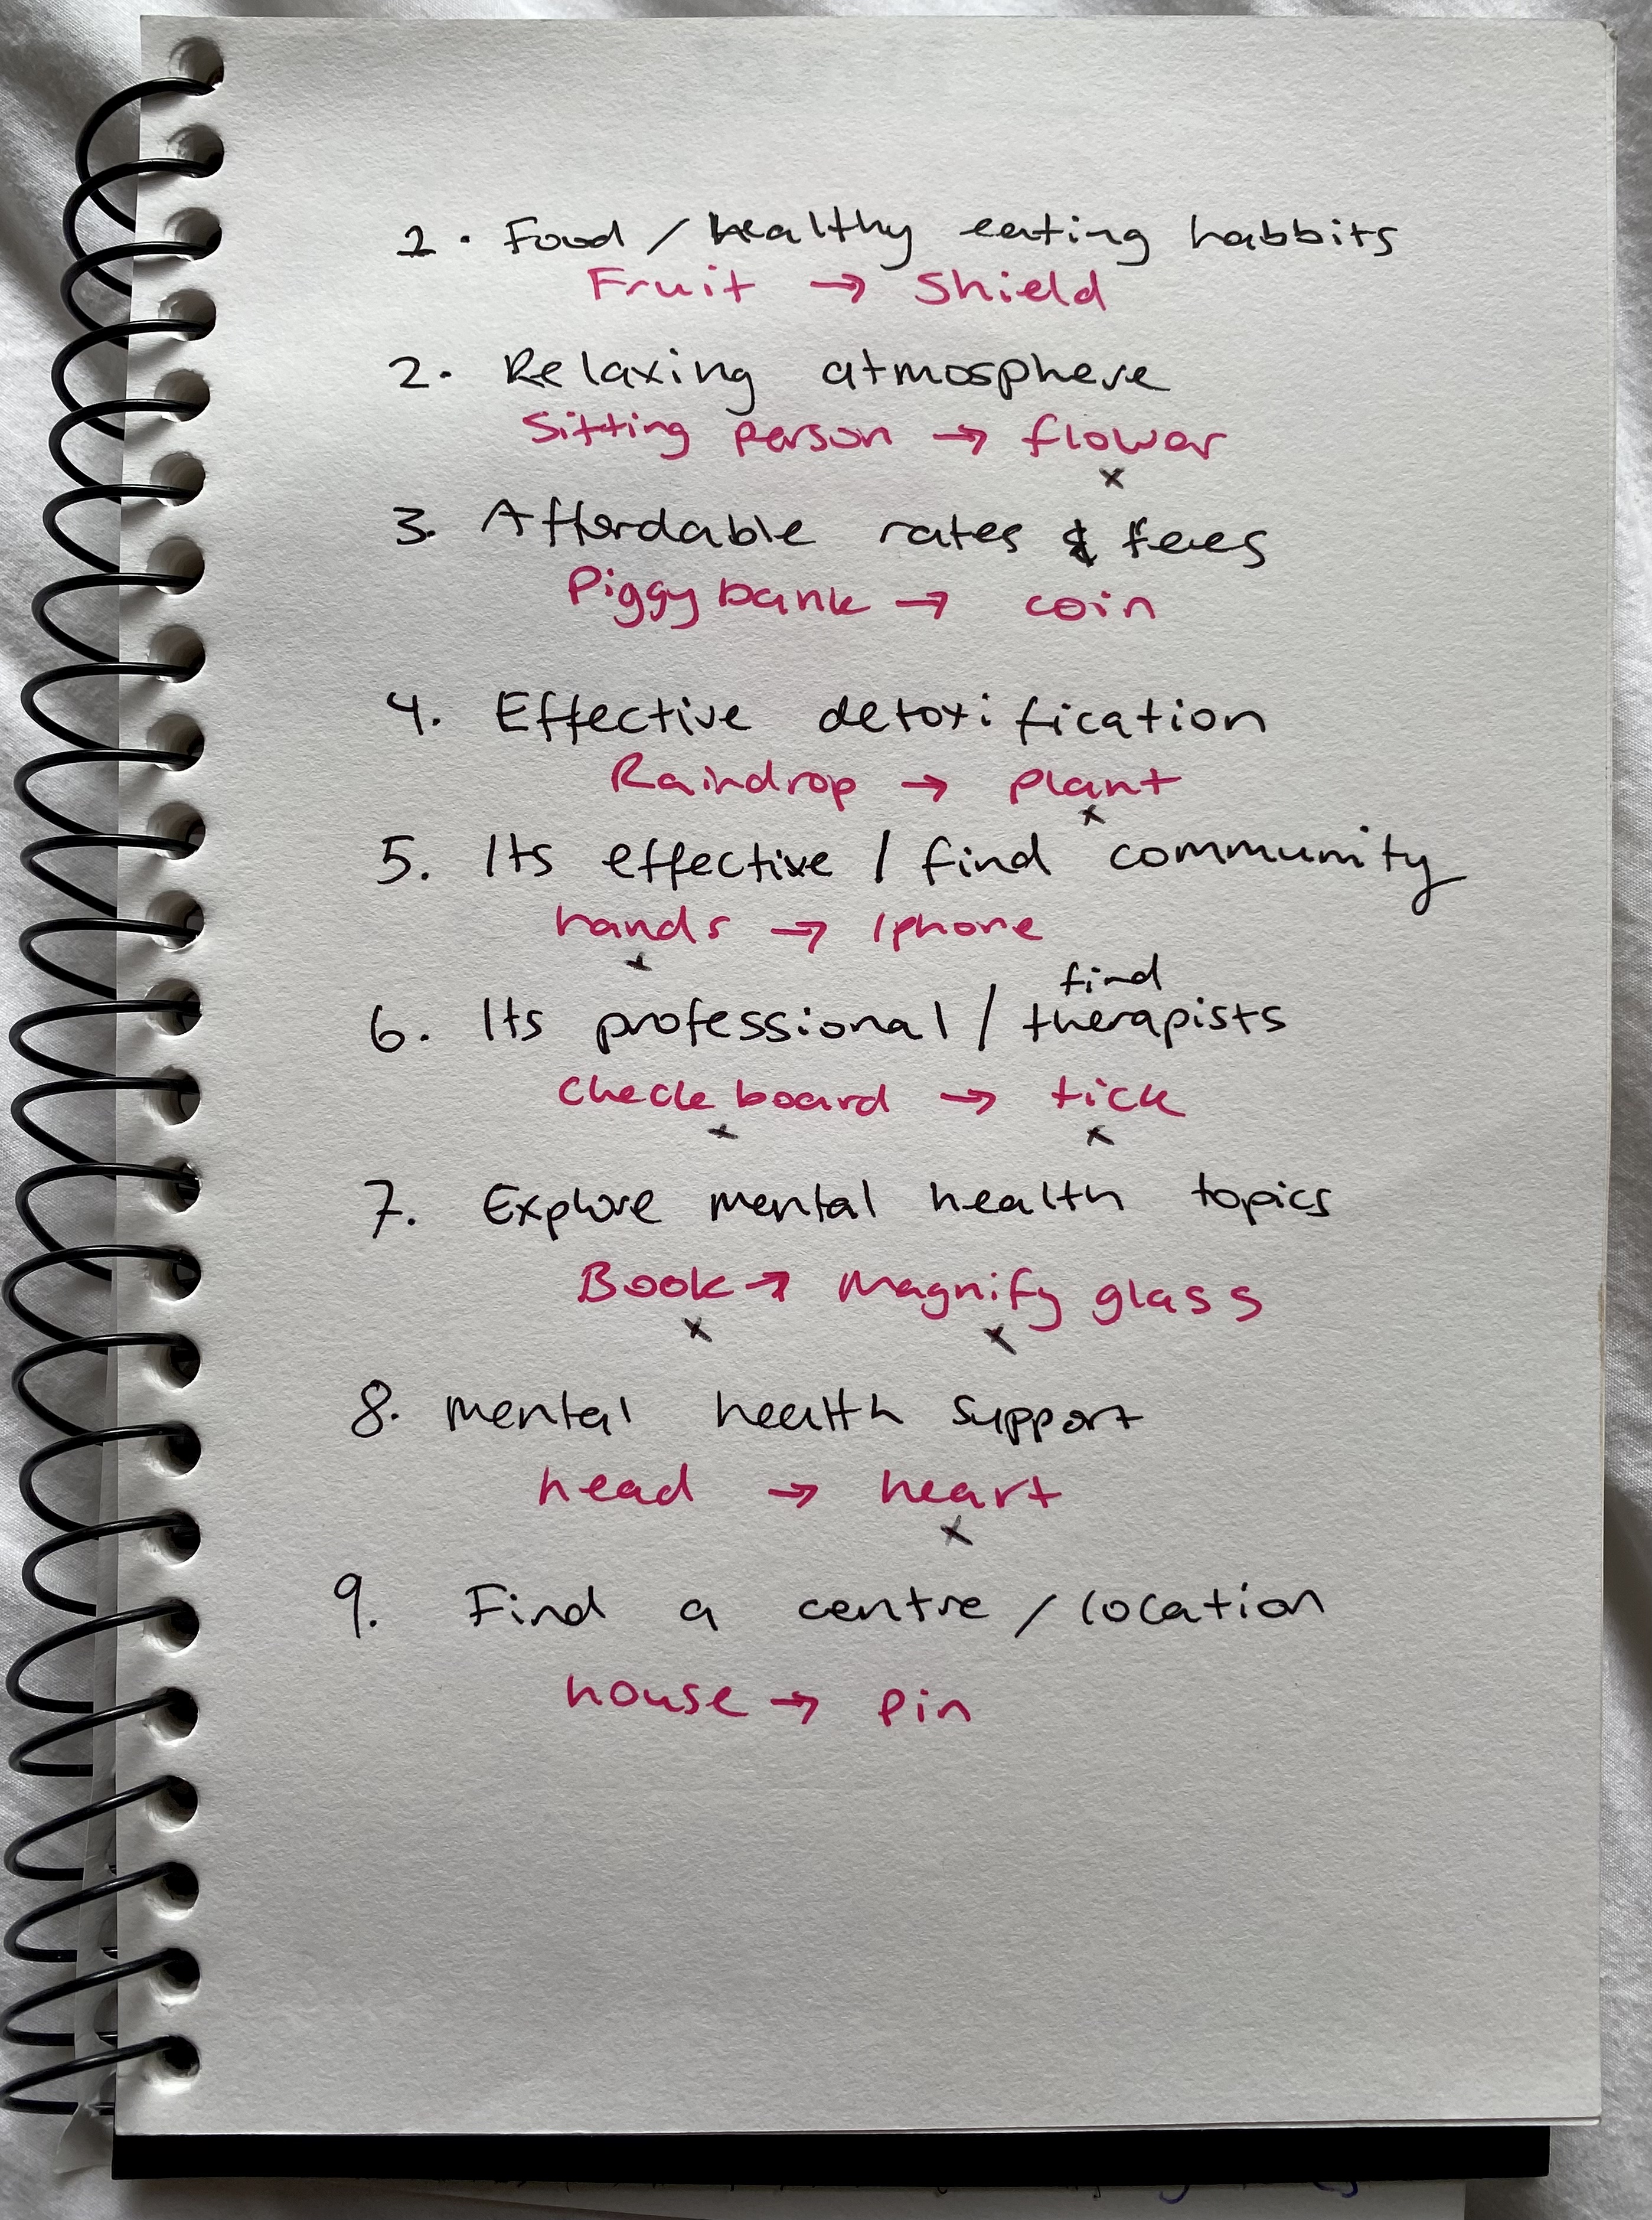 1. Food / healthy eating habbits
Fruit → Shield
2. Relaxing atmosphere
Sitting person → flower
x
3. Affordable rates & fees
Piggy bank → coin
4. Effective detoxification
Raindrop → plant
x
5. Its effective / find community
hands → Iphone
x
find
6. Its professional / therapists
Check board → tick
x x
7. Explore mental health topics
Book → Magnify glass
x x
8. mental health support
head → heart
x
9. Find a centre / location
house → pin